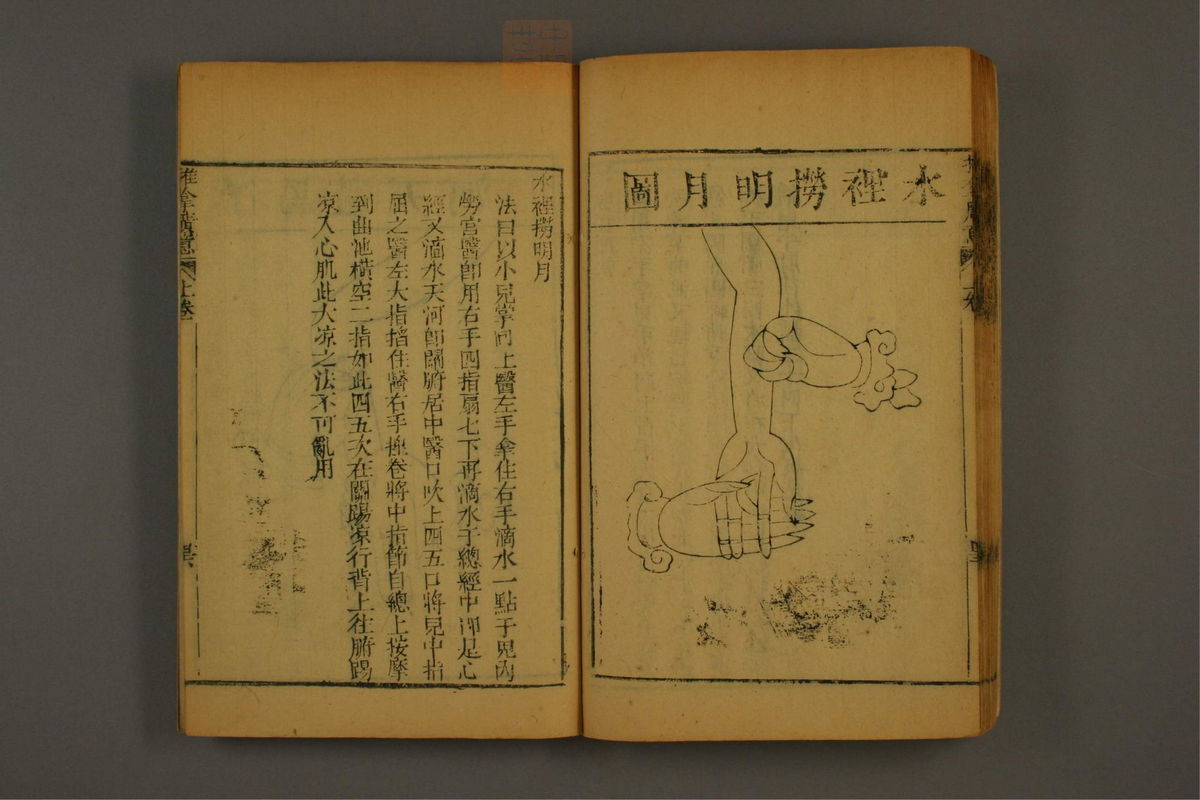 水裡撈明月圖
水裡撈明月
法曰以小兒掌向上醫左手拿住右手滴水一點于兒內
勞宮醫即用右手四指扇七下再滴水于總經中即是心
經又滴水天河即關腑居中醫口吹上四五口將兒中指
屈之醫左大指掐住醫右手捏卷將中指節自總上按摩
到曲池橫空二指如此四五次在關踢凉行背上往腑踢
凉入心肌此大凉之法不可亂用
推拿廣意
上卷